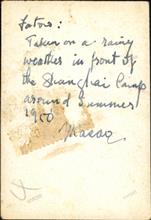 Fotos:
Taken on a rainy
weather in front of
the Shanghai Camp
around Summer
1950